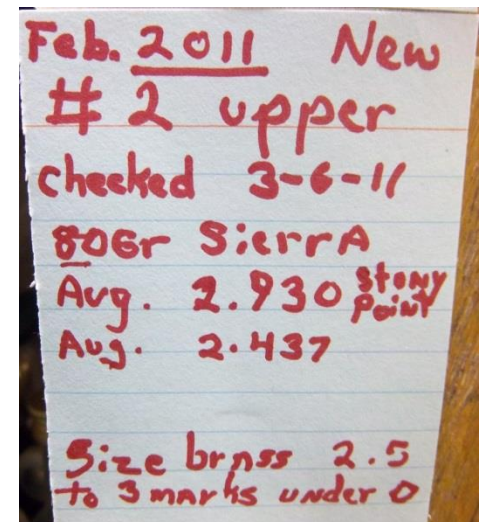 Feb. 2011 New
# 2 upper
checked 3-6-11
80Gr SierrA
Avg. 2.930 Stony Point
Aug. 2.437
Size brass 2.5
to 3 marks under 0